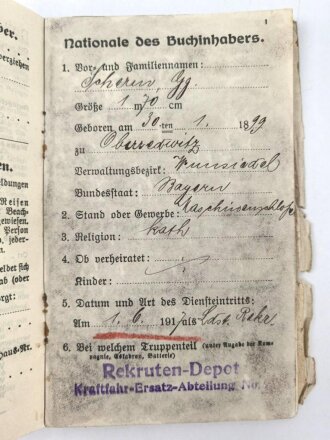 ber.
erziehen
en.
eldungen
Reisen
Beach-
ewiesen.
Person
o, jeder-
der sich
ab (oder
orgt:
aus-Nr.
1
Nationale des Buchinhabers.
1. Vor- und Familiennamen:
Scherm, Gg.
Größe 1 m 70 cm
Geboren am 30ten 1. 1899
zu Oberredwitz
Verwaltungsbezirk: Wunsiedel
Bundesstaat: Bayern
2. Stand oder Gewerbe: Maschinenschlosser
3. Religion: kath
4. Ob verheiratet:
Kinder:
5. Datum und Art des Diensteintritts:
Am 1. 6. 1917 als Ldst. Rekr.
6. Bei welchem Truppenteil (unter Angabe der Kom-
pagnie, Eskadron, Batterie)
Rekruten-Depot
Kraftfahr-Ersatz-Abteilung No.